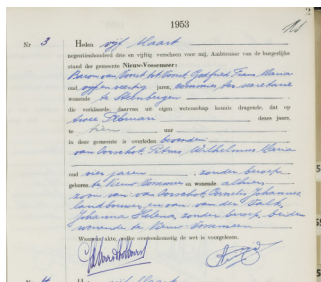 1953
Nr 3 Heden vijf Maart
negentienhonderd drie en vijftig verscheen voor mij, Ambtenaar van de burgerlijke
stand der gemeente Nieuw-Vossemeer:
Baron van Voorst tot Voorst, Godfried Frans Maria
oud vijf en veertig jaren,
wonende te Steenbergen
die verklaarde, daarvan uit eigen wetenschap kennis dragende, dat op
twee Februari dezes jaars,
te tien ure
in deze gemeente is overleden bevonden
van Oorschot, Petrus Wilhelmus Maria
oud vier jaren, zonder beroep
geboren te Nieuw Vossemeer en wonende alhier,
zoon van van Oorschot Cornelis Johannes
landbouwer, en van van der
Johanna Helena, zonder beroep, beiden
wonende te Nieuw Vossemeer
Waarvan akte, welke overeenkomstig de wet is voorgelezen.